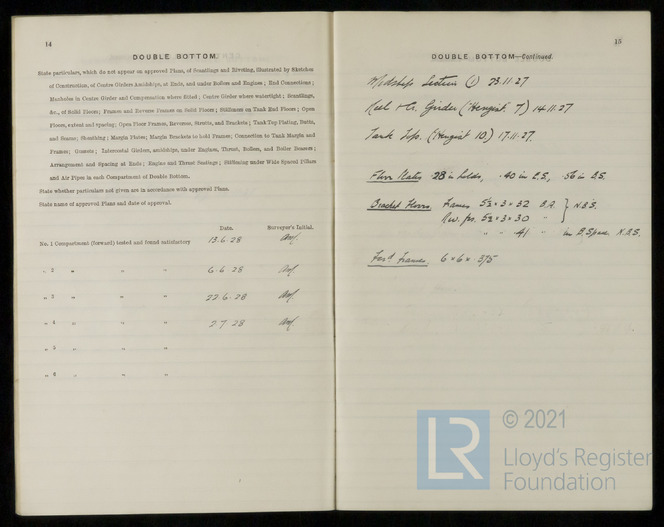 14
DOUBLE BOTTOM.
State particulars, which do not appear on approved Plans, of Scantlings and Riveting, illustrated by Sketches
of Construction, of Centre Girders Amidships, at Ends, and under Boilers and Engines; End Connections;
Manholes in Centre Girder and Compensation where fitted; Centre Girder where watertight; Scantlings,
&c., of Solid Floors; Frames and Reverse Frames on Solid Floors; Stiffeners on Tank End Floors; Open
Floors, extent and spacing; Open Floor Frames, Reverses, Struts, and Brackets; Tank Top Plating, Butts,
and Seams; Sheathing; Margin Plates; Margin Brackets to hold Frames; Connection to Tank Margin and
Frames; Gussets; Intercostal Girders, amidships, under Engines, Thrust, Boilers, and Boiler Bearers;
Arrangement and Spacing at Ends; Engine and Thrust Seatings; Stiffening under Wide Spaced Pillars
and Air Pipes in each Compartment of Double Bottom.
State whether particulars not given are in accordance with approved Plans.
State name of approved Plans and date of approval.
Date. Surveyor's Initial.
No. 1 Compartment (forward) tested and found satisfactory 13.6.28
„ 2 „ „ „ 6.6.28
„ 3 „ „ „ 22.6.28
„ 4 „ „ „ 2.7.28
„ 5 „ „ „
„ 6 „ „ „
15
DOUBLE BOTTOM—Continued.
Midships Section (1) 23.11.27
Keel & Cr. Girder (Hengist 7) 14.11.27
Tank Top. (Hengist 10.) 17.11.27.
Floor Plates .28 in holds, .40 in E.S, .56 in B.S.
Bracket Floors Frames 5½ × 3 × 32 B.A. } N.B.S.
Rev. frs. 5½ × 3 × 30 "
" " 41 " in B. Space. N.B.S.
6 × 6 × .375
© 2021
LR
Lloyd's Register
Foundation